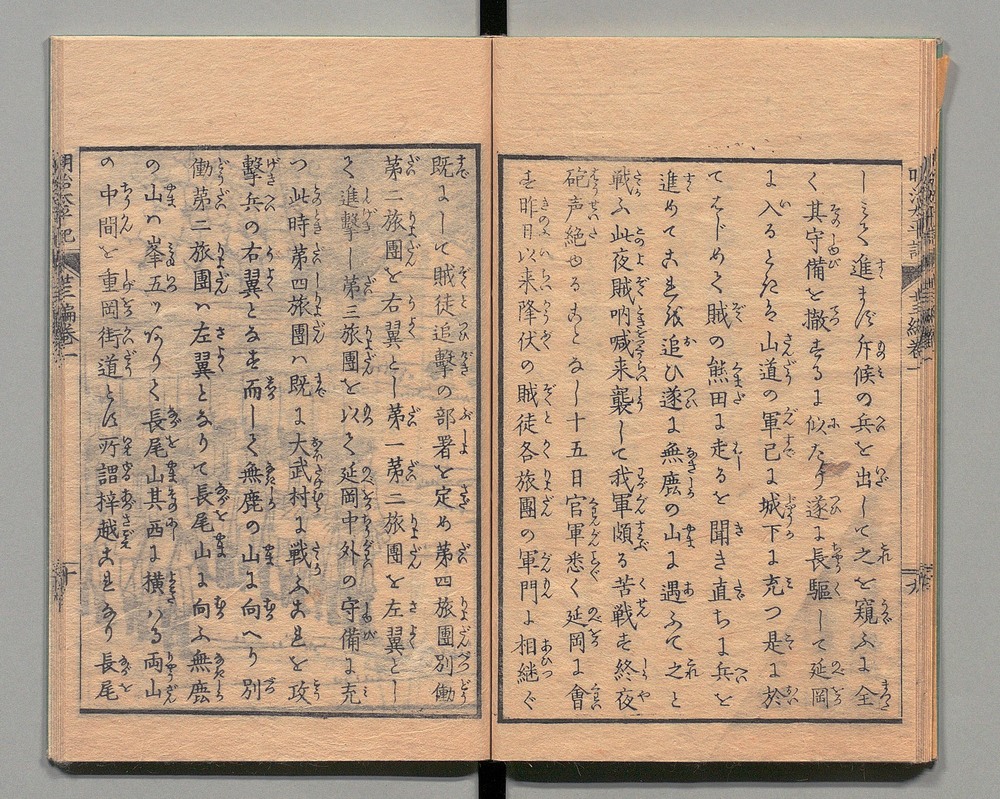 しミて進まず斥候の兵を出して之を窺ふに全
く其守備を撤するに似たり遂に長驅して延岡
に入るとたん山道の軍已に城下に充つ是に於
てはじめて賊の熊田に走るを聞き直ちに兵を
進めてこれを追ひ遂に無鹿の山に遇ふて之と
戦ふ此夜賊吶喊来襲して我軍頗る苦戦す終夜
砲声絶ゆることなし十五日官軍悉く延岡に會
す昨日以来降伏の賊徒各旅團の軍門に相継ぐ
九
既にして賊徒追撃の部署を定め第四旅團別働
第二旅團を右翼とし第一第二旅團を左翼とし
て進撃し第三旅團を以て延岡中外の守備に充
つ此時第四旅團ハ既に大武村に戦ふこれを攻
撃兵の右翼となす而して無鹿の山に向へり別
働第二旅團ハ左翼となりて長尾山に向ふ無鹿
の山ハ峯五ツありて長尾山其西に横ハる両山
の中間を重岡街道とは所謂梓越これなり長尾
明治太平記
十一編巻一
十